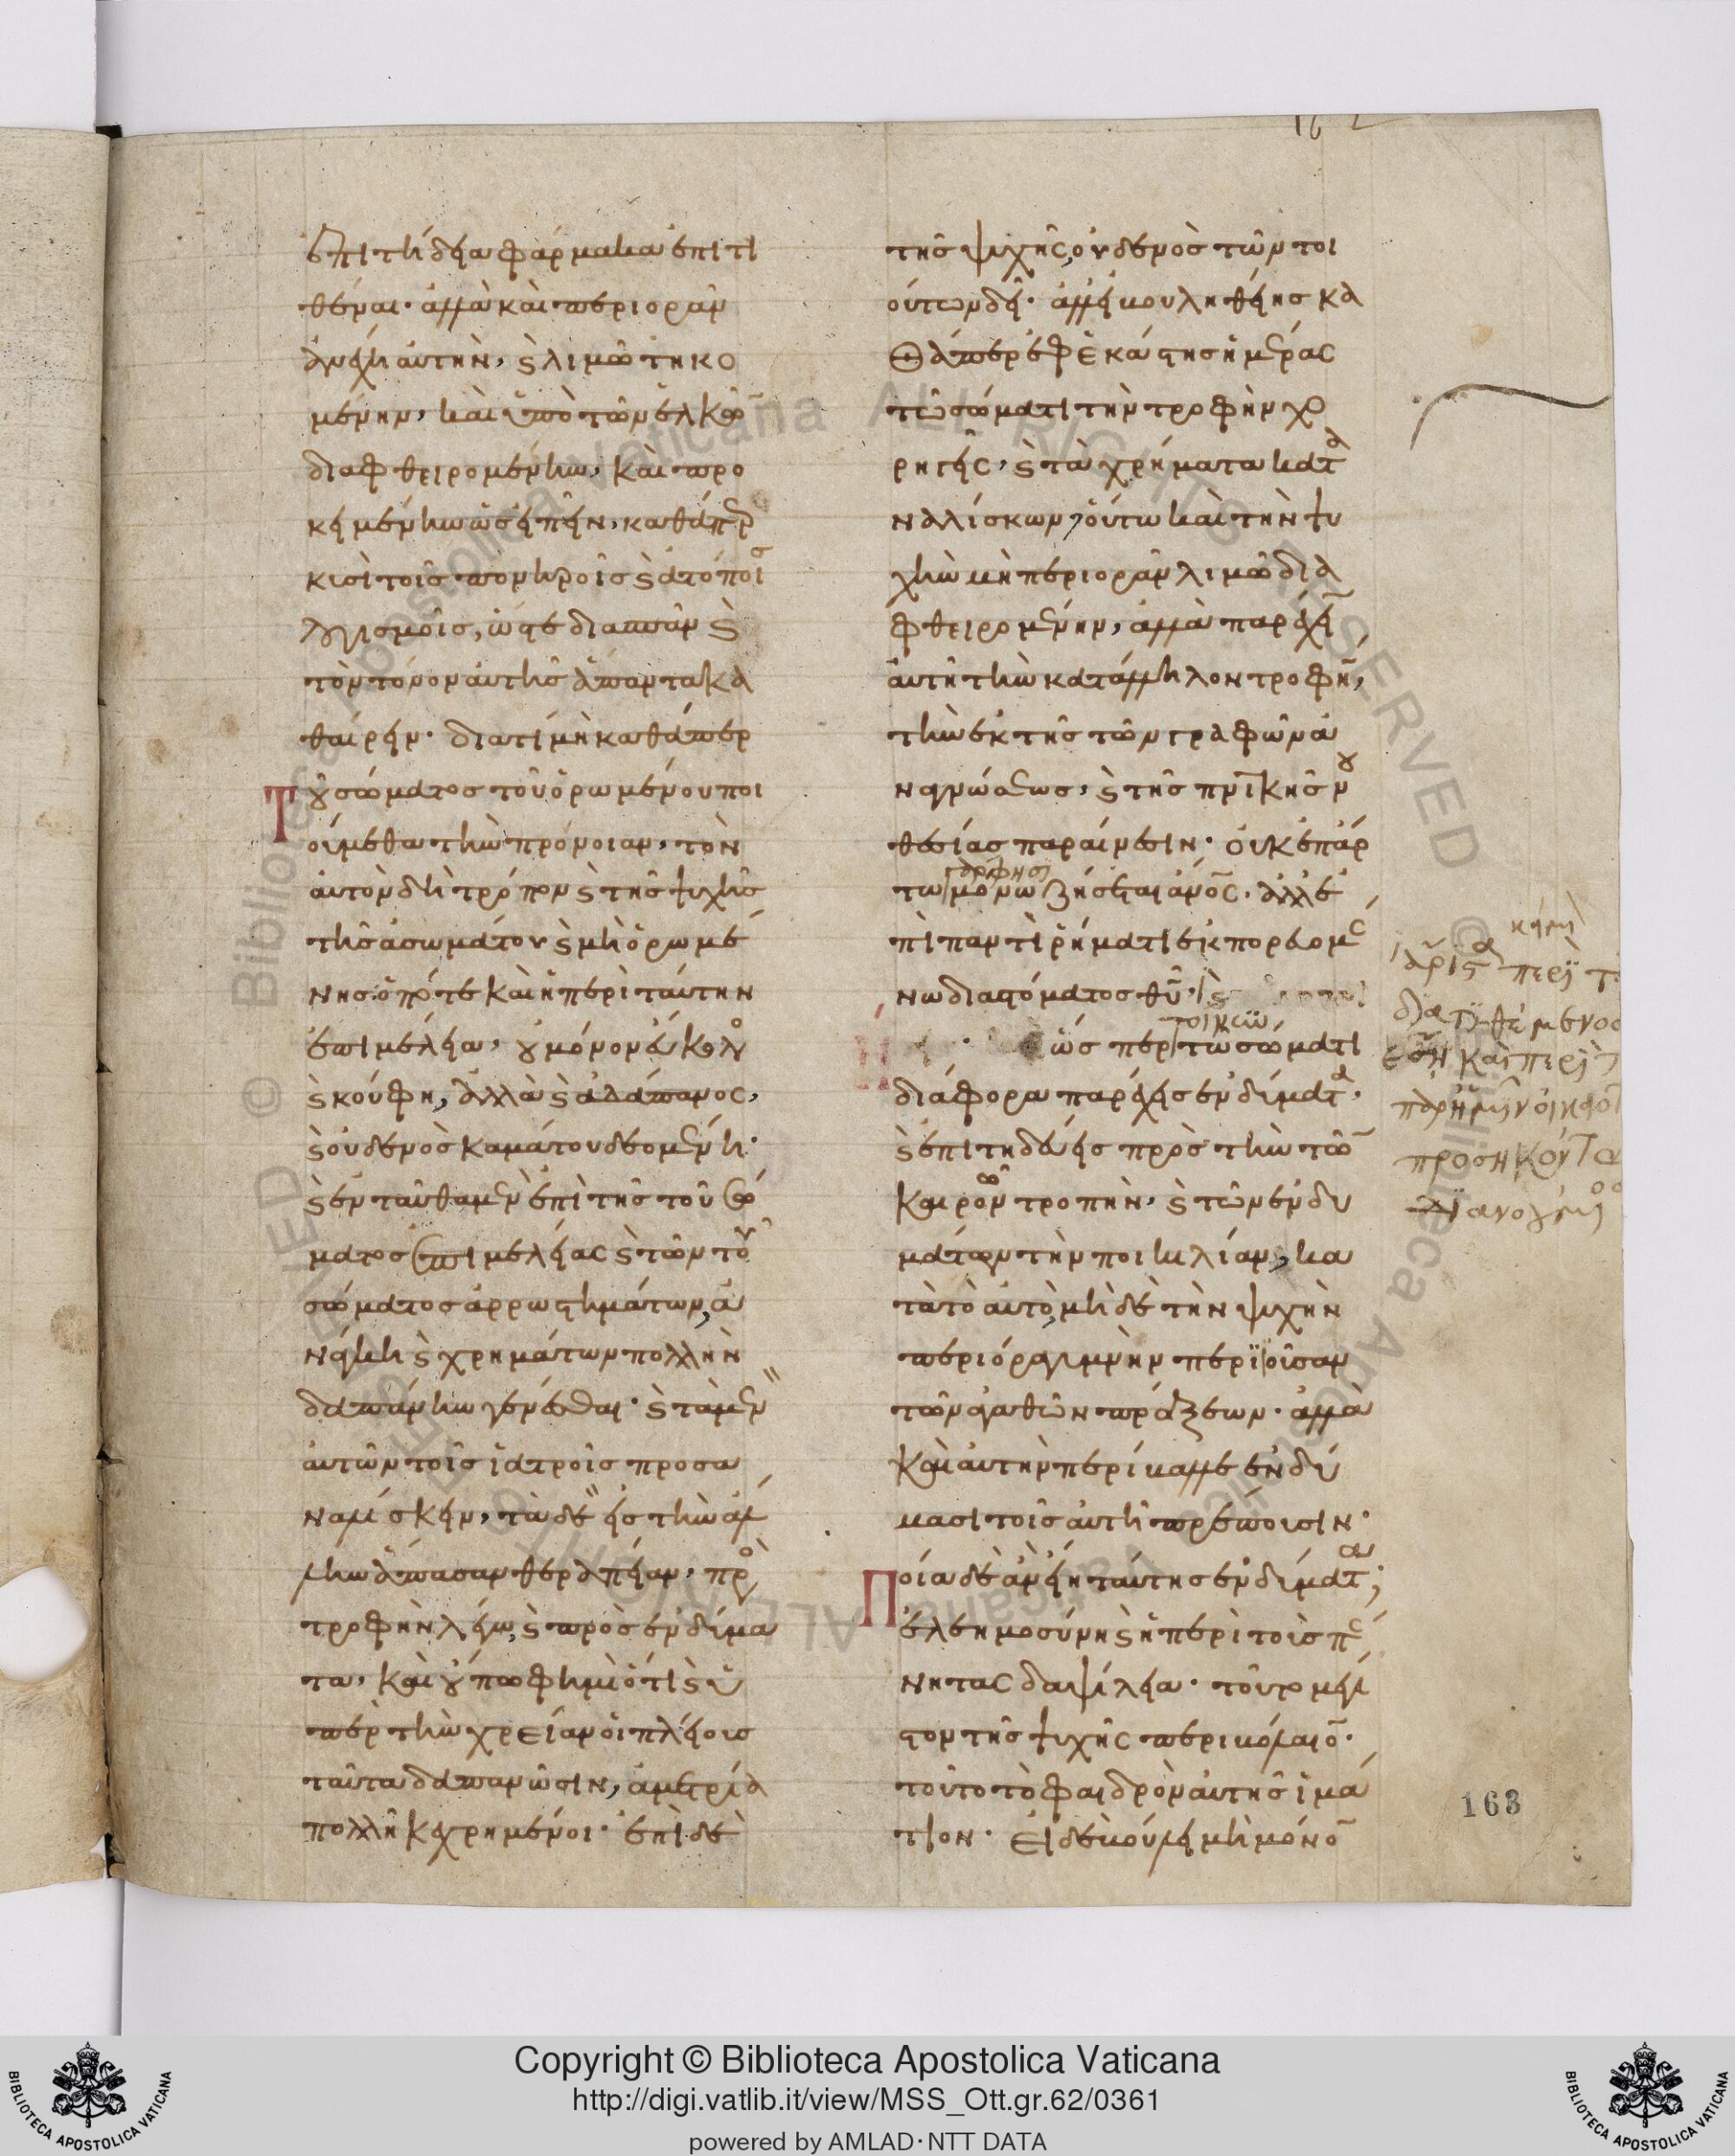 ἐπιτήδεια φάρμακα ἐπιτι
θέναι· ἀλλὰ καὶ περιορᾶν
ἄγχει αὐτὴν, ϗ λιμῶ τηκο
μένην, καὶ ὑπὸ τῶν ἑλκῶ̄
διαφθειρομένην, καὶ προ
κειμένην ὡσείπειν, καθάπερ
κισὶ τοῖς πονηροῖς ϗ ἀτόποι
λογισμοῖς, ὥστε διασπᾶν ϗ
τὸν τόνον αὐτῆς ἅπαντα κα
θαίρειν· διατί μὴ καθάπερ
Τοῦ σώματος τοῦ ὁρωμένου ποι
ούμεθα τὴν πρόνοιαν, τὸν
αὐτὸν δὴ τρόπον ϗ τῆς ψυχῆς
τῆς ἀσωμάτου ϗ μὴ ὁρωμέ
νης· ὁπότε καὶ ἡ περὶ ταύτην
ἐπιμέλεια, οὐ μόνον εὔκολο
ϗ κούφη, ἀλλὰ ϗ ἀδάπανος,
ϗ οὐδενὸς καμάτου δεομένη·
ϗ ἐνταῦθα μὲν ἐπὶ τῆς τοῦ σώ
ματος ἐπιμελείας ϗ τῶν τοῦ
σώματος ἀρρωστημάτων, ἀ
νάγκη ϗ χρημάτων πολλὴν
δαπάνην γενέσθαι· ϗ τὰ μὲν
αὐτῶν τοῖς ἰατροῖς προσα
ναλίσκειν, τὰ δὲ εἰς τὴν ἄλ
λην ἅπασαν θεραπείαν, πρὸ
τροφὴν λέγω, ϗ πρὸς ἐνδύμα
τα, καὶ οὔπω φημὶ ὅτι ϗ ὑ
πὲρ τὴν χρείαν οἱ πλείους
ταῦτα δαπανῶσιν, ἀμετρία
πολλῆ κεχρημένοι· ἐπὶ δὲ
τῆς ψυχῆς, οὐδενὸς τῶν τοι
ούτων δεῖ· ἀλλ' εἰ βουληθείης κα
θάπερ ἐφ' ἑκάστης ἡμέρας
τῶ σώματι τὴν τροφὴν χο
ρηγεῖς, ϗ τὰ χρήματα κατα
ναλίσκων, οὕτω καὶ τὴν ψυ
χὴν μὴ περιορᾶν λιμῶ δια
φθειρομένην, ἀλλὰ παρέχει
αὐτῆ τὴν κατάλληλον τροφὴ̄,
τὴν ἐκ τῆς τῶν γραφῶν ἀ
ναγνώσεως, ϗ τῆς πν̅ικῆς νου
θεσίας παραίνεσιν· οὐκ ἐπ' ἄρ
τω μόνω ζήσεται ἄν̅ος. ἀλλ' ἐ
πὶ παντὶ ῥήματι ἐκπορευομέ
νω διαστόματος θ̅υ̅,
ὥσπερ τῶ σώματι
διάφορα παρέχεις ἐνδύματα·
ϗ ἐπιτηδεύεις πρὸς τὴν τῶ̄
καιρῶν τροπὴν, ϗ τῶν ἐνδυ
μάτων τὴν ποικιλίαν, κα
τὰ τὸ αὐτὸ, μὴ δὲ τὴν ψυχὴν
περιόρα γυμνὴν περιϊοῦσαν
τῶν ἀγαθῶν πράξεων· ἀλλὰ
καὶ αὐτὴν περίβαλλε ἐνδύ
μασι τοῖς αὐτῆ πρέπουσιν·
Ποῖα δὲ ἂν εἴη ταύτης ἐνδύματα;
ἐλεημοσύνη ϗ ἡ περὶ τοὺς πέ
νητας δαψίλεια· τοῦτο μέγι
στον τῆς ψυχῆς περιβόλαιο̄·
τοῦτο τὸ φαιδρὸν αὐτῆς ἱμά
τιον· εἰ δὲ βούλει μὴ μόνο̄
διατιθέμενος
163
Copyright © Biblioteca Apostolica Vaticana
http://digi.vatlib.it/view/MSS_Ott.gr.62/0361
powered by AMLAD·NTT DATA